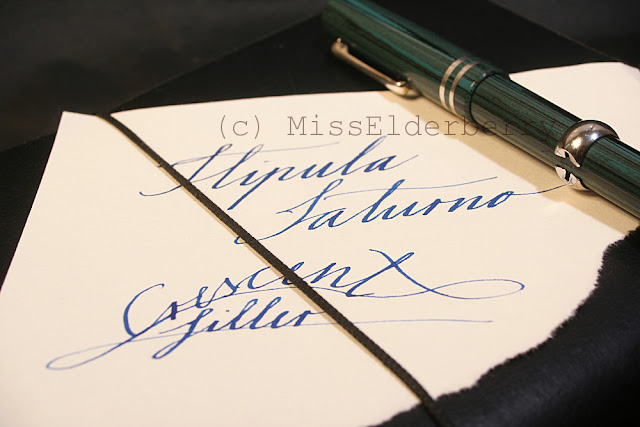 (c) MissElderberry
Stipula
Saturno
Crescent
filler